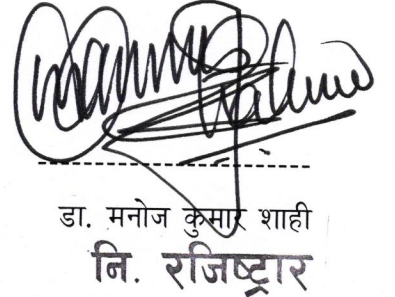 डा. मनोज कुमार शाही
नि. रजिष्ट्रार